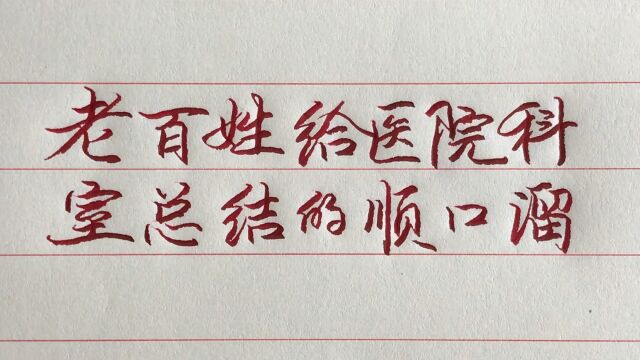 老百姓给医院科
室总结的顺口溜